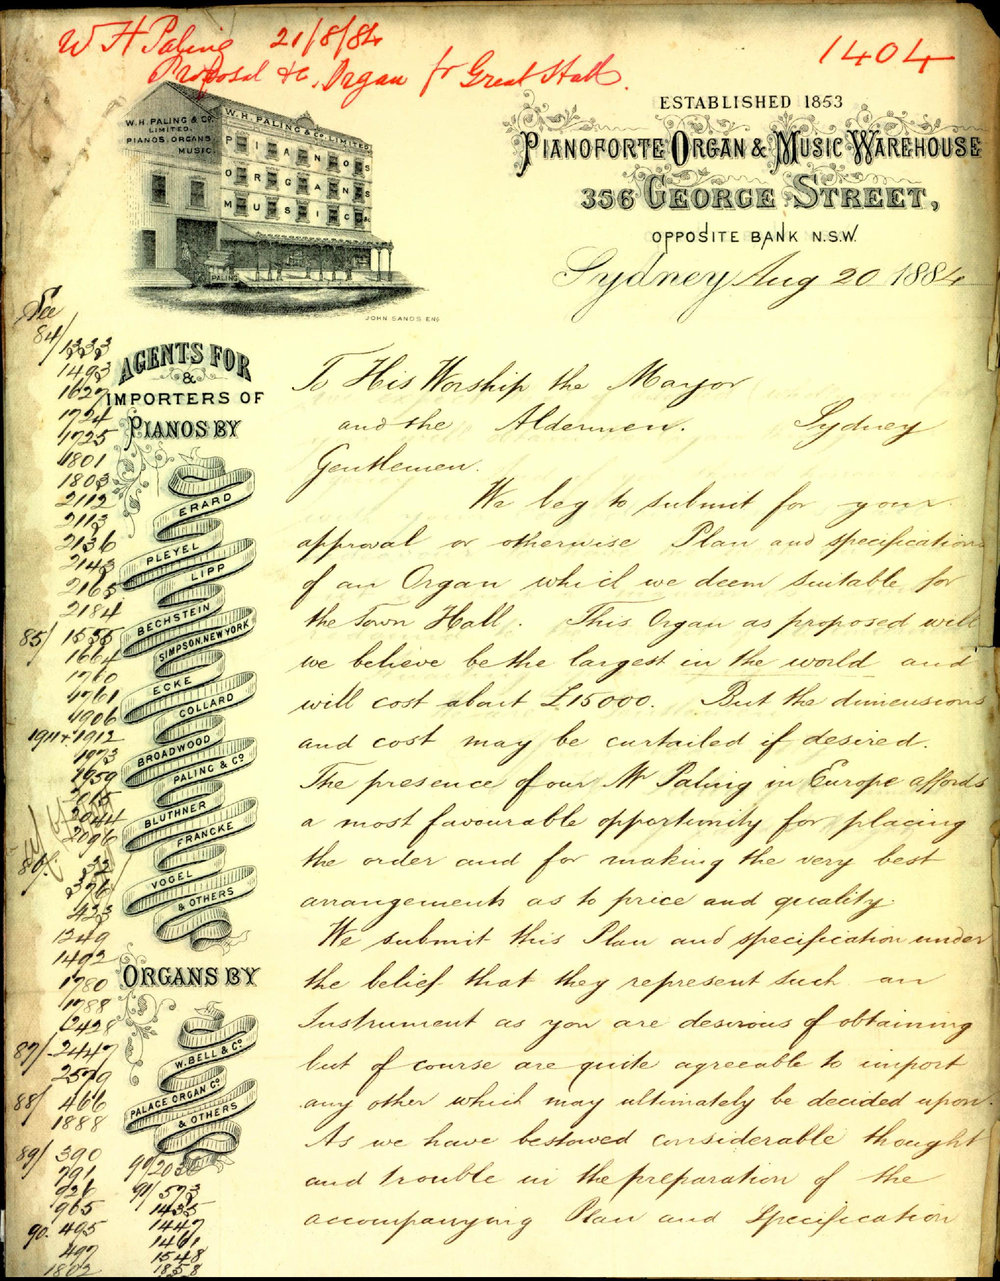 W H Paling 21/8/84
Proposal &c, Organ for Great Hall.
1404
W.H. PALING & Co.
LIMITED.
PIANOS, ORGANS
MUSIC.
W.H. PALING & Co. LIMITED.
PIANOS
ORGANS
MUSIC &c
PALING
JOHN SANDS ENG
ESTABLISHED 1853
PIANOFORTE ORGAN & MUSIC WAREHOUSE
356 GEORGE STREET,
OPPOSITE BANK N.S.W.
Sydney Aug 20 1884
See
84/1333
1493
1627
1724
1725
1801
1803
2112
2113
2136
2143
2165
2184
85/ 1555
1664
1760
4761
4906
1911+1912
1973
1959
2044
2096
86/. 32
376
423
1249
1492
1780
1788
2428
87/ 2447
2579
88/ 466
1888
89/ 390
791
926
965
90. 495
497
1802
91/ 573
1435
1447
1461
1548
1858
AGENTS FOR
&
IMPORTERS OF
PIANOS BY
ERARD
PLEYEL
LIPP
BECHSTEIN
SIMPSON, NEW YORK
ECKE
COLLARD
BROADWOOD
PALING & Co
BLUTHNER
FRANCKE
VOGEL
& OTHERS
ORGANS BY
W. BELL & Co
PALACE ORGAN Co
& OTHERS
To His Worship the Mayor
and the Aldermen. Sydney
Gentlemen.
We beg to submit for your
approval or otherwise Plan and specifications
of an Organ which we deem suitable for
the Town Hall. This Organ as proposed will
we believe be the largest in the world and
will cost about £15000. But the dimensions
and cost may be curtailed if desired.
The presence of our Mr Paling in Europe affords
a most favourable opportunity for placing
the order and for making the very best
arrangements as to price and quality.
We submit this Plan and specification under
the belief that they represent such an
Instrument as you are desirous of obtaining
but of course are quite agreeable to import
any other which may ultimately be decided upon.
As we have bestowed considerable thought
and trouble in the preparation of the
accompanying Plan and Specification